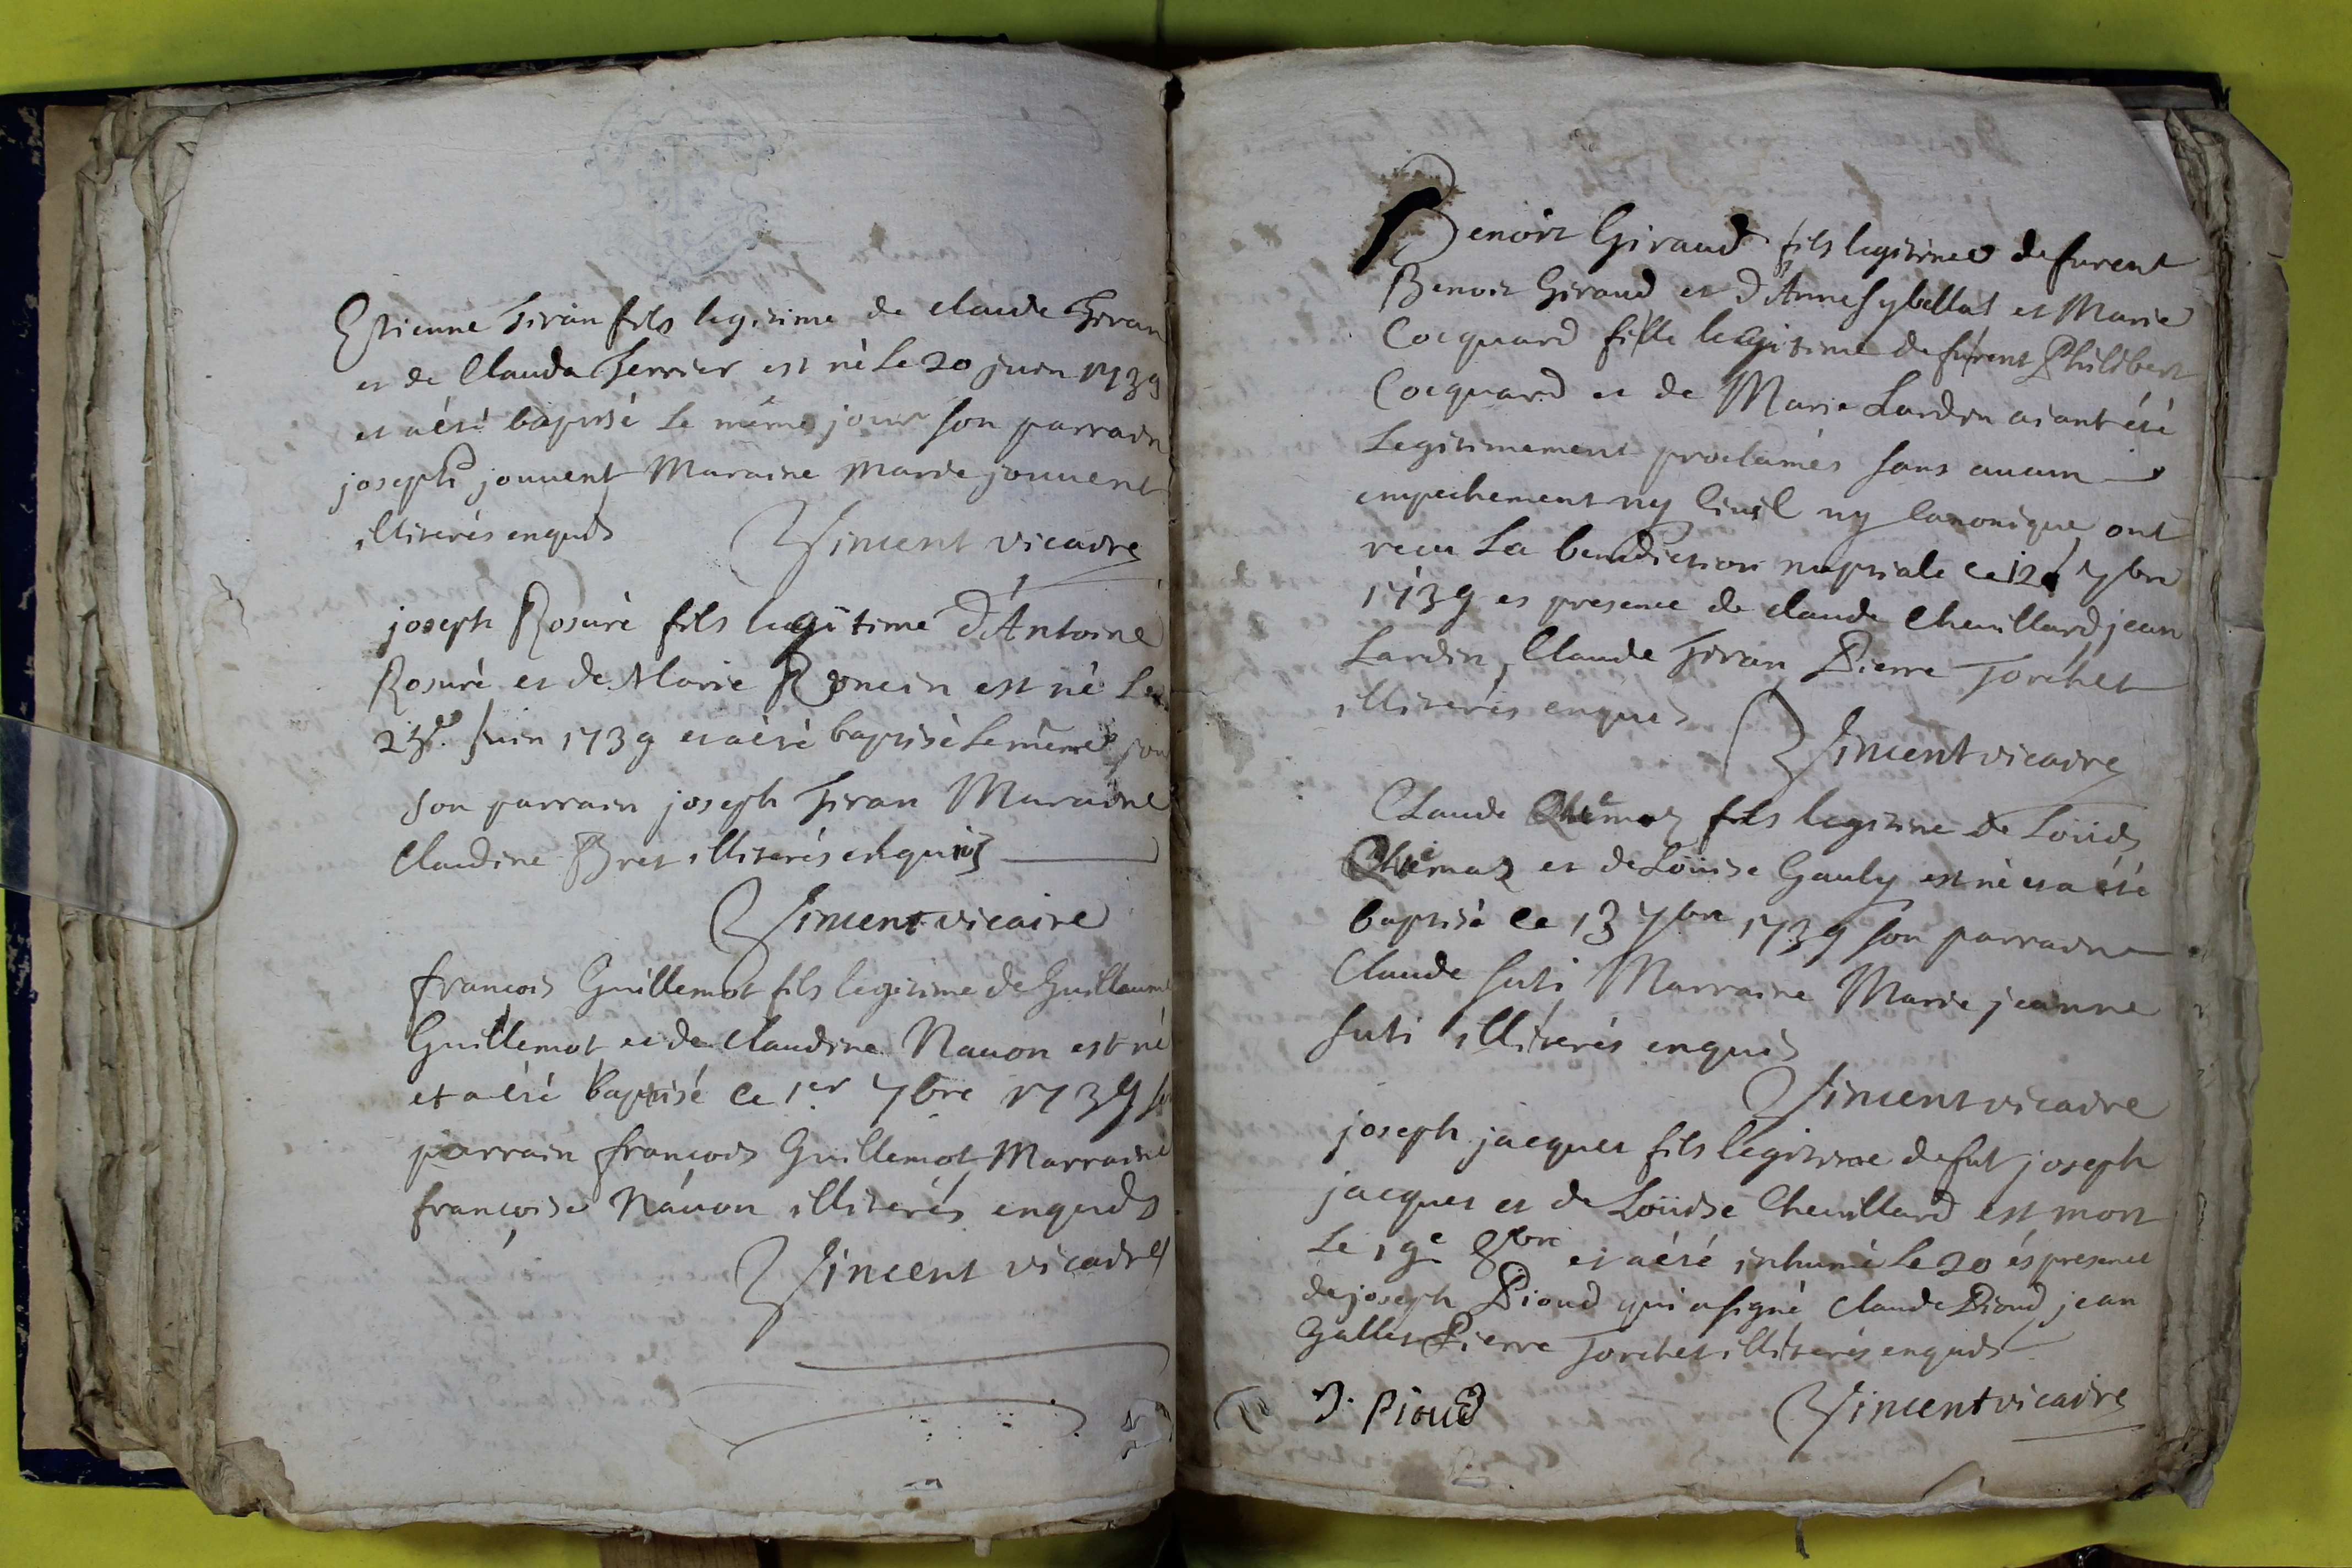 Etienne Tiran fils legitime de claude Tiran
et de Clauda Terrier est né Le 20 juin 1739
et a été baptisé Le même jour son parrain
joseph jouvent Maraine Marie jouvent
illiterés enquis Vincent vicaire
joseph Rosuré fils legitime d'Antoine
Rosuré et de Marie Roncin est né Le
23e. juin 1739 et a été baptisé Le même jour
son parrain joseph Tiran Maraine
Claudine Bret illiterés enquis
Vincent vicaire
francois Guillemot fils legitime de Guillaume
Guillemot et de Claudine Navon est né
et a été baptisé ce 1er 7bre 1739 son
parrain francois Guillemot Marraine
francoise Navon illiterés enquis
Vincent vicaire
Benoit Giraud fils legitime defurent
Benoit Giraud et d'Anne Sybellas et Marie
Cocquard fille legitime defurent Philibert
Cocquard et de Marie Lardin aiant été
Legitimement proclamés sans aucun
empechement ny Civil ny Canonique ont
recu La benediction nuptiale ce 12 7bre
1739 es presence de claude Chevillard jean
Lardin, Claude Tiran Pierre Torchet
illiterés enquis
Vincent vicaire
Claude fils legitime de Loüis
et de Loüise Gauly est né et a été
baptisé ce 13 7bre 1739 son parraine
Claude Suti Marraine Marie jeanne
Suti illiterés enquis
Vincent vicaire
joseph jacques fils legitime defut joseph
jacques et de Loüise Chevillard est mort
Le 19e 8bre et a été inhumé Le 20 és presence
de joseph Pioud qui a signé Claude Pioud jean
Gallet Pierre Torchet illiterés enquis
J. Pioud Vincent vicaire